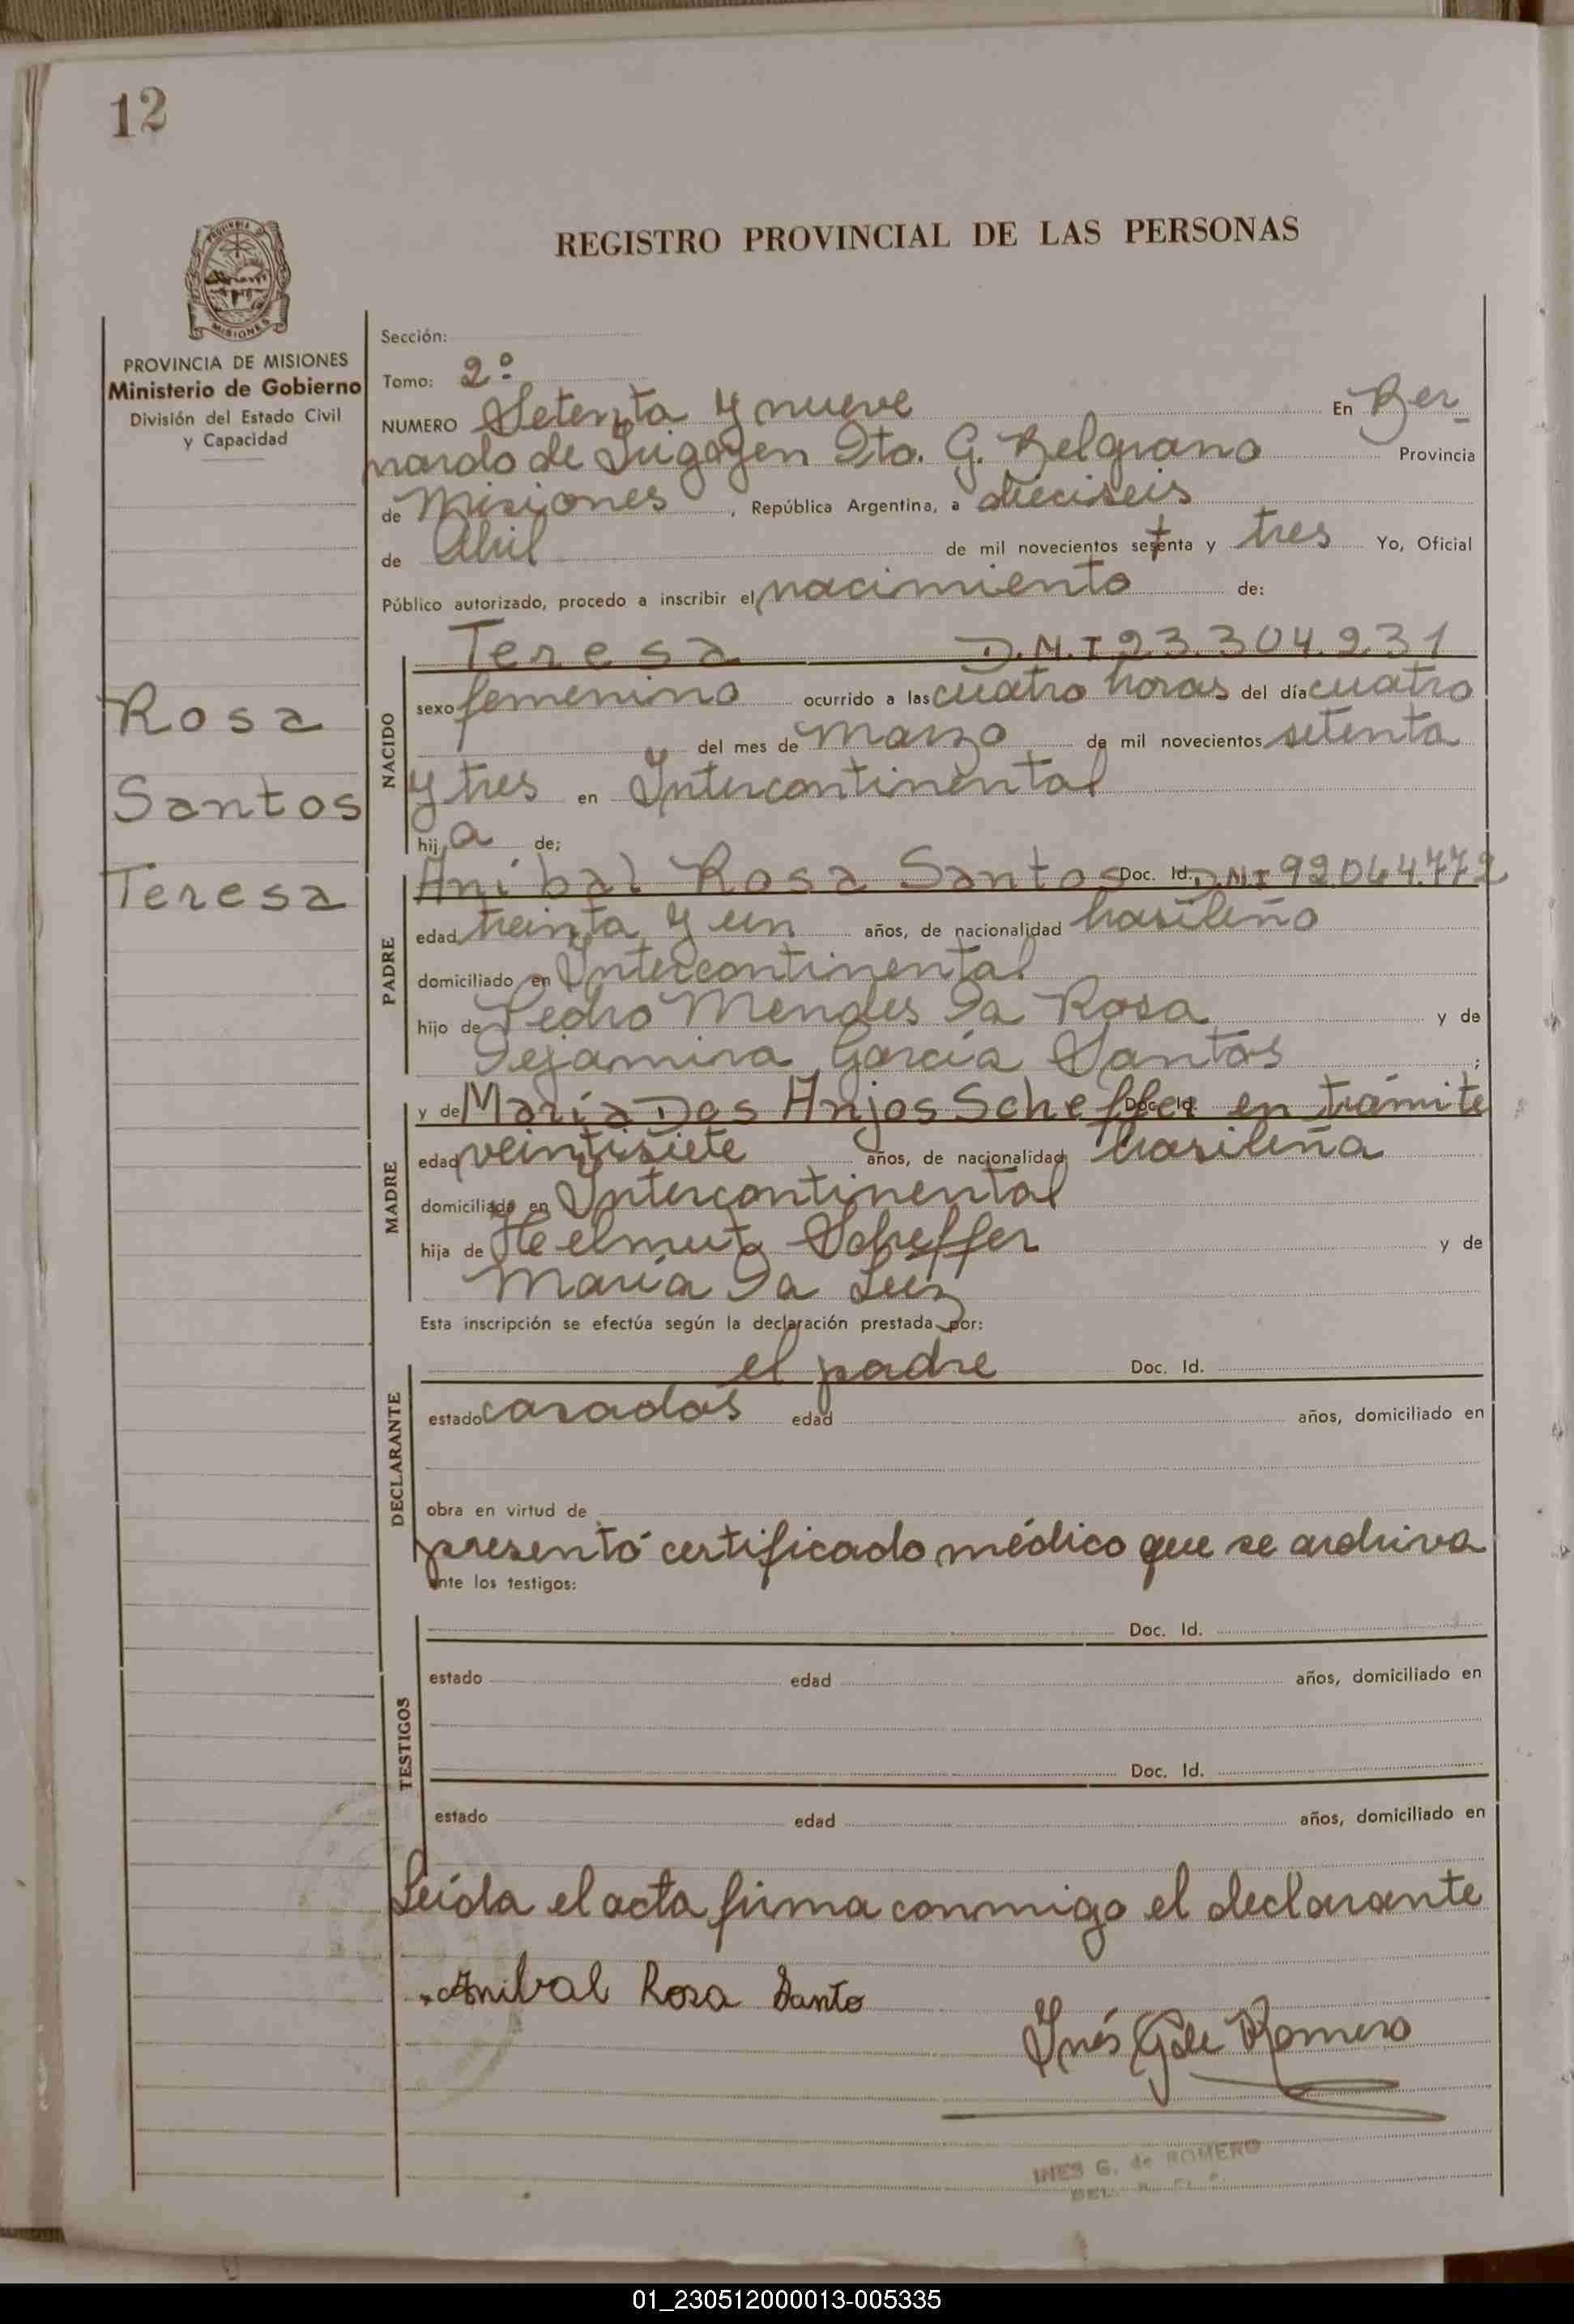 12
REGISTRO PROVINCIAL DE LAS PERSONAS
MISIONES
PROVINCIA DE MISIONES
Ministerio de Gobierno
División del Estado Civil
y Capacidad
Rosa
Santos
Teresa
Sección:
Tomo: 2º
NUMERO Setenta y nueve En Ber-
nardo de Irigoyen Dto. G. Belgrano Provincia
de Misiones, República Argentina, a dieciseis
de Abril de mil novecientos setenta y tres Yo, Oficial
Público autorizado, procedo a inscribir el nacimiento de:
NACIDO
Teresa D.N.I 23.304.231
sexo femenino ocurrido a las cuatro horas del día cuatro
del mes de marzo de mil novecientos setenta
y tres en Intercontinental
hija de;
PADRE
Aníbal Rosa Santos Doc. Id. D.N.I 92.064.772
edad treinta y un años, de nacionalidad brasileño
domiciliado en Intercontinental
hijo de Pedro Mendes Da Rosa y de
Dejamira García Santos ;
MADRE
y de María Dos Anjos Scheffer Doc. Id. en trámite
edad veintisiete años, de nacionalidad brasileña
domiciliada en Intercontinental
hija de Helmut Scheffer y de
María Da Luz
Esta inscripción se efectúa según la declaración prestada por:
DECLARANTE
el padre Doc. Id.
estado casados edad años, domiciliado en
obra en virtud de
presentó certificado médico que se archiva
ante los testigos:
TESTIGOS
Doc. Id.
estado edad años, domiciliado en
Doc. Id.
estado edad años, domiciliado en
Leída el acta firma conmigo el declarante
Anibal Rosa Santo
Inés G de Romero
INES G. de ROMERO
01_230512000013-005335